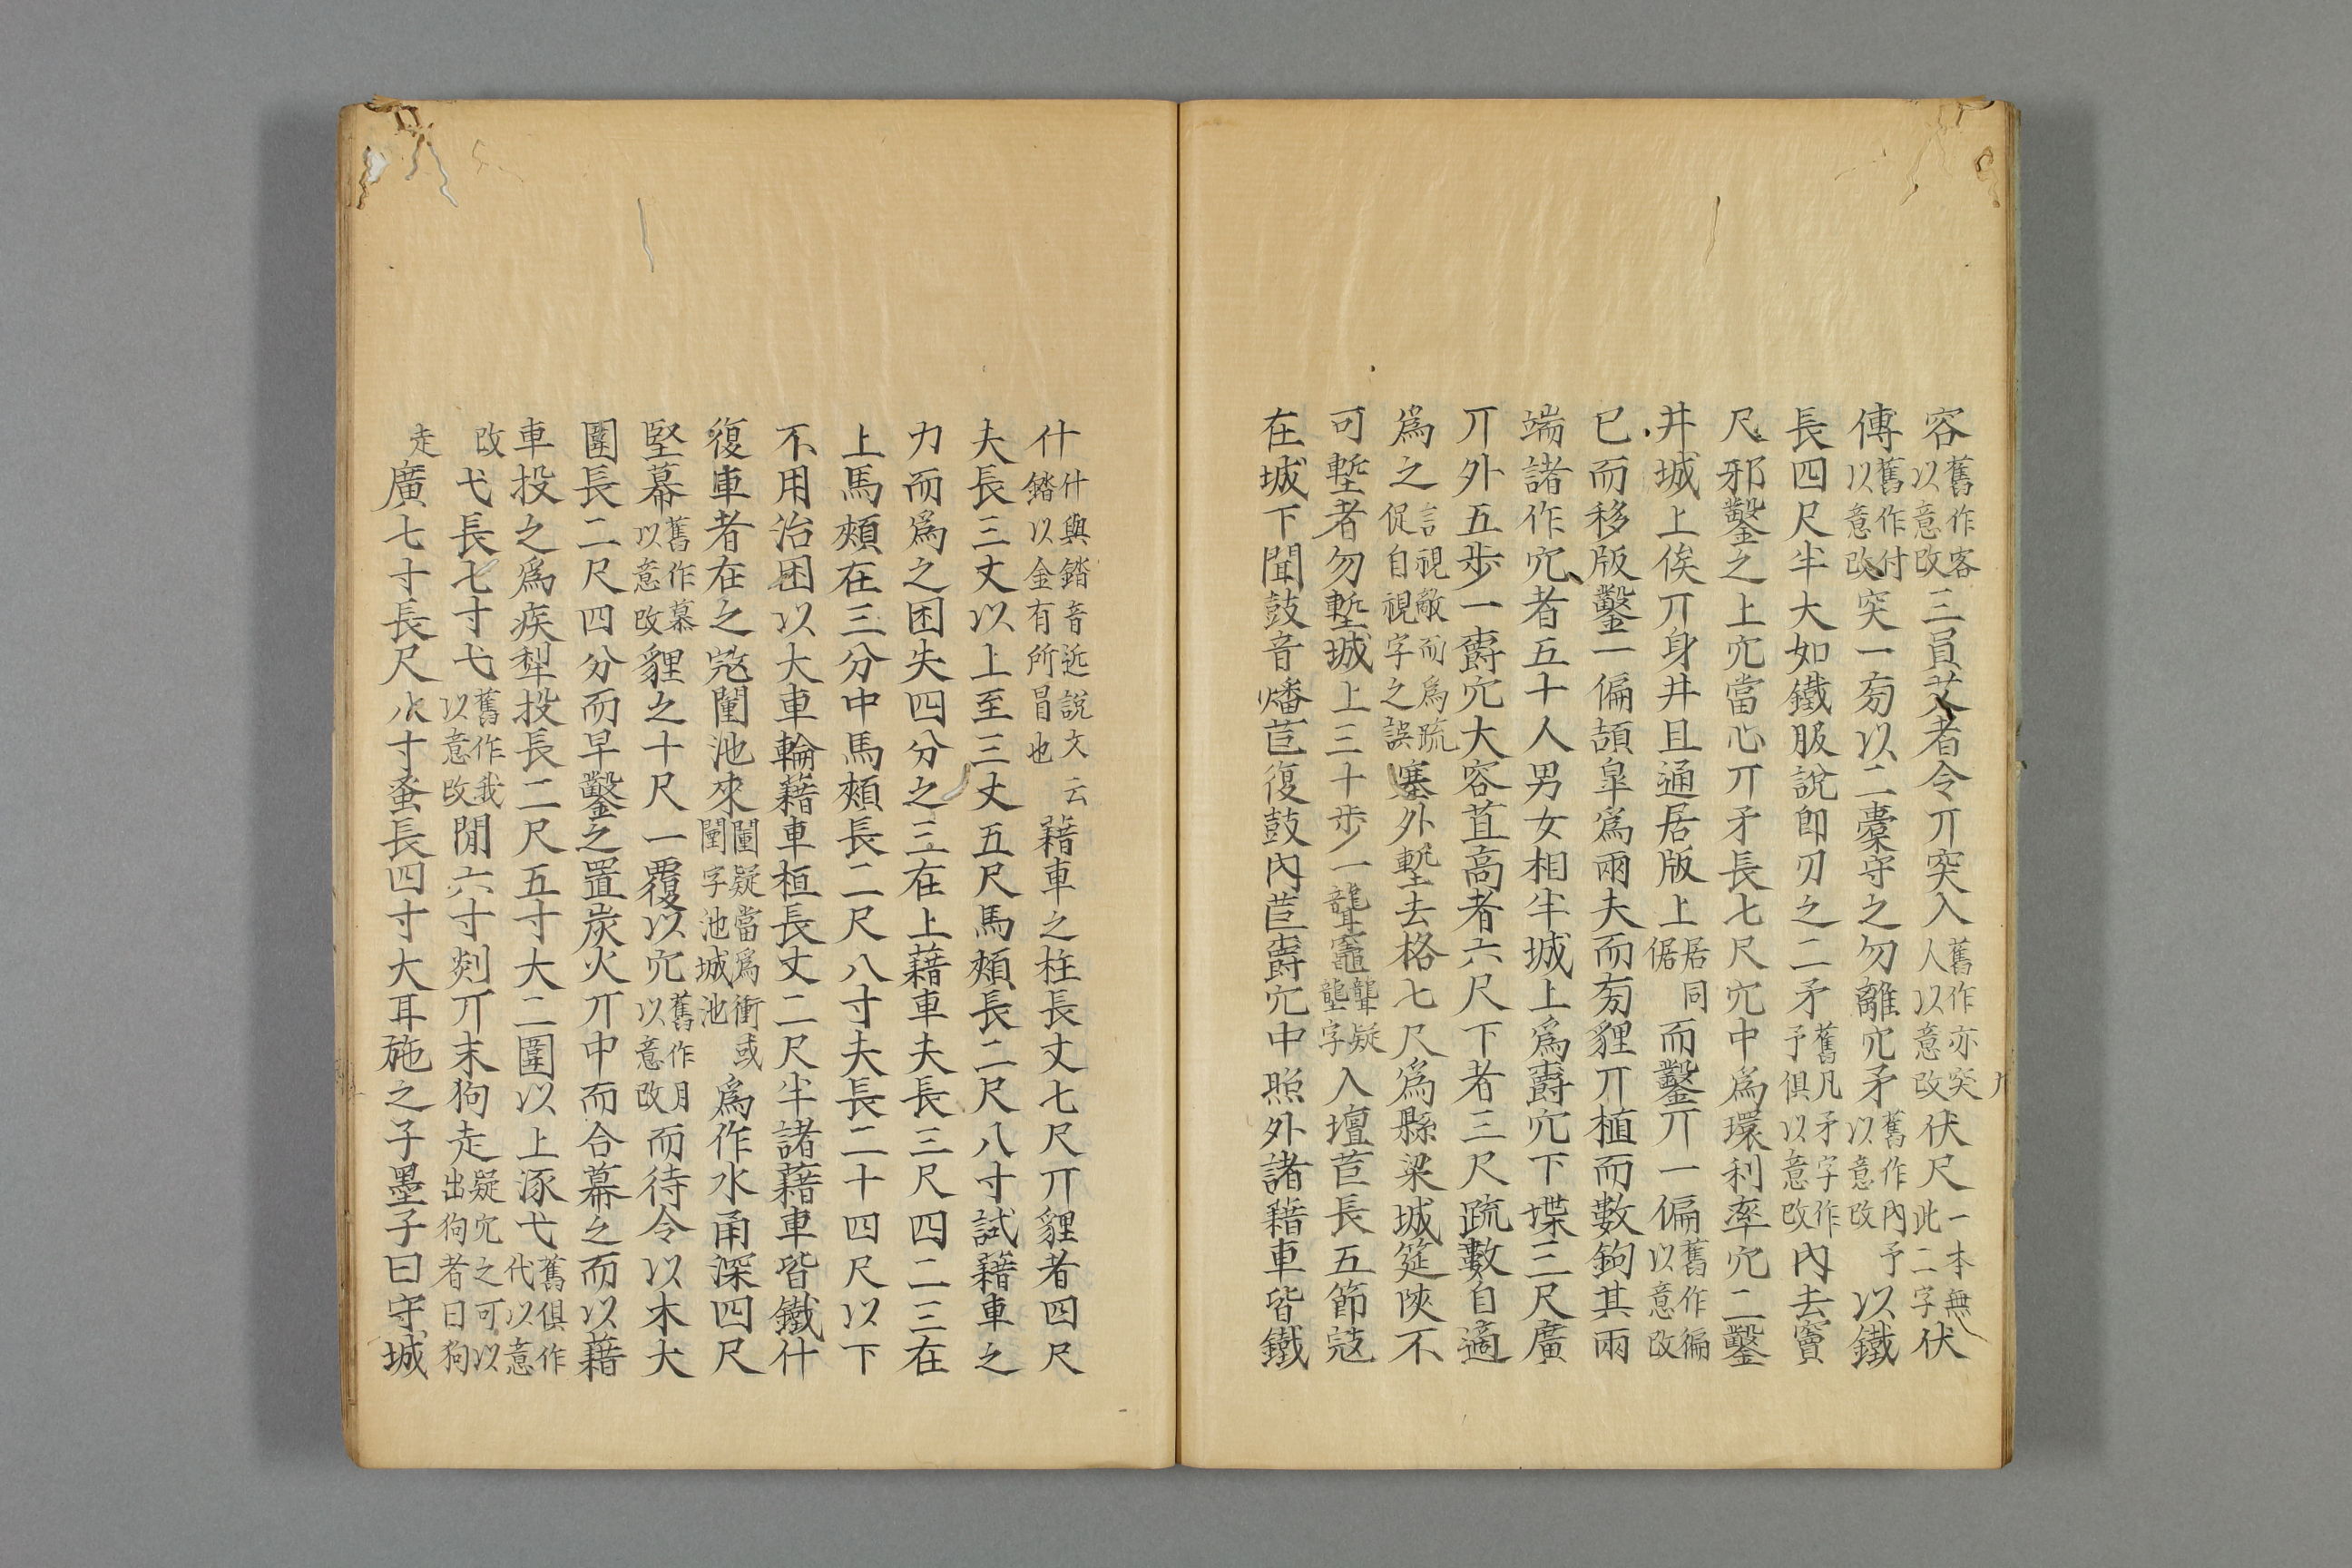 容舊作客以意改三員艾者令丌突入舊作亦突人以意改伏尺一本無此二字伏
傳舊作付以意改突一㫄以二橐守之勿離穴矛舊作內予以意改以鐵
長四尺半大如鐵服說卽刃之二矛舊凡矛字作予俱以意改內去竇
尺邪鑿之上穴當心丌矛長七尺穴中爲環利率穴二鑿
井城上俟丌身井且通居版上居同倨而鑿丌一偏舊作徧以意改
已而移版鑿一偏頡皐爲兩夫而㫄貍丌植而數鉤其兩
端諸作穴者五十人男女相半城上爲爵穴下堞三尺廣
丌外五步一爵穴大容苴高者六尺下者三尺疏數自適
爲之言視敵而爲疏促自視字之誤塞外塹去格七尺爲縣梁城筵陜不
可塹者勿塹城上三十步一聾竈聾疑壟字入壇苣長五節寇
在城下聞鼓音燔苣復鼓內苣爵穴中照外諸藉車皆鐵
什什與錔音近說文云錔以金有所冒也藉車之柱長丈七尺丌貍者四尺
夫長三丈以上至三丈五尺馬頰長二尺八寸試藉車之
力而爲之困失四分之三在上藉車夫長三尺四二三在
上馬頰在三分中馬頰長二尺八寸夫長二十四尺以下
不用治困以大車輪藉車桓長丈二尺半諸藉車皆鐵什
復車者在之寇闉池來闉疑當爲衝或闉字池城池爲作水甬深四尺
堅幕舊作慕以意改貍之十尺一覆以穴舊作月以意改而待令以木大
圍長二尺四分而早鑿之置炭火丌中而合幕之而以藉
車投之爲疾犁投長二尺五寸大二圍以上涿弋舊俱作代以意
改弋長七寸弋舊作我以意改閒六寸剡丌末狗走疑穴之可以出狗者曰狗
走廣七寸長尺八寸蚤長四寸大耳施之子墨子曰守城